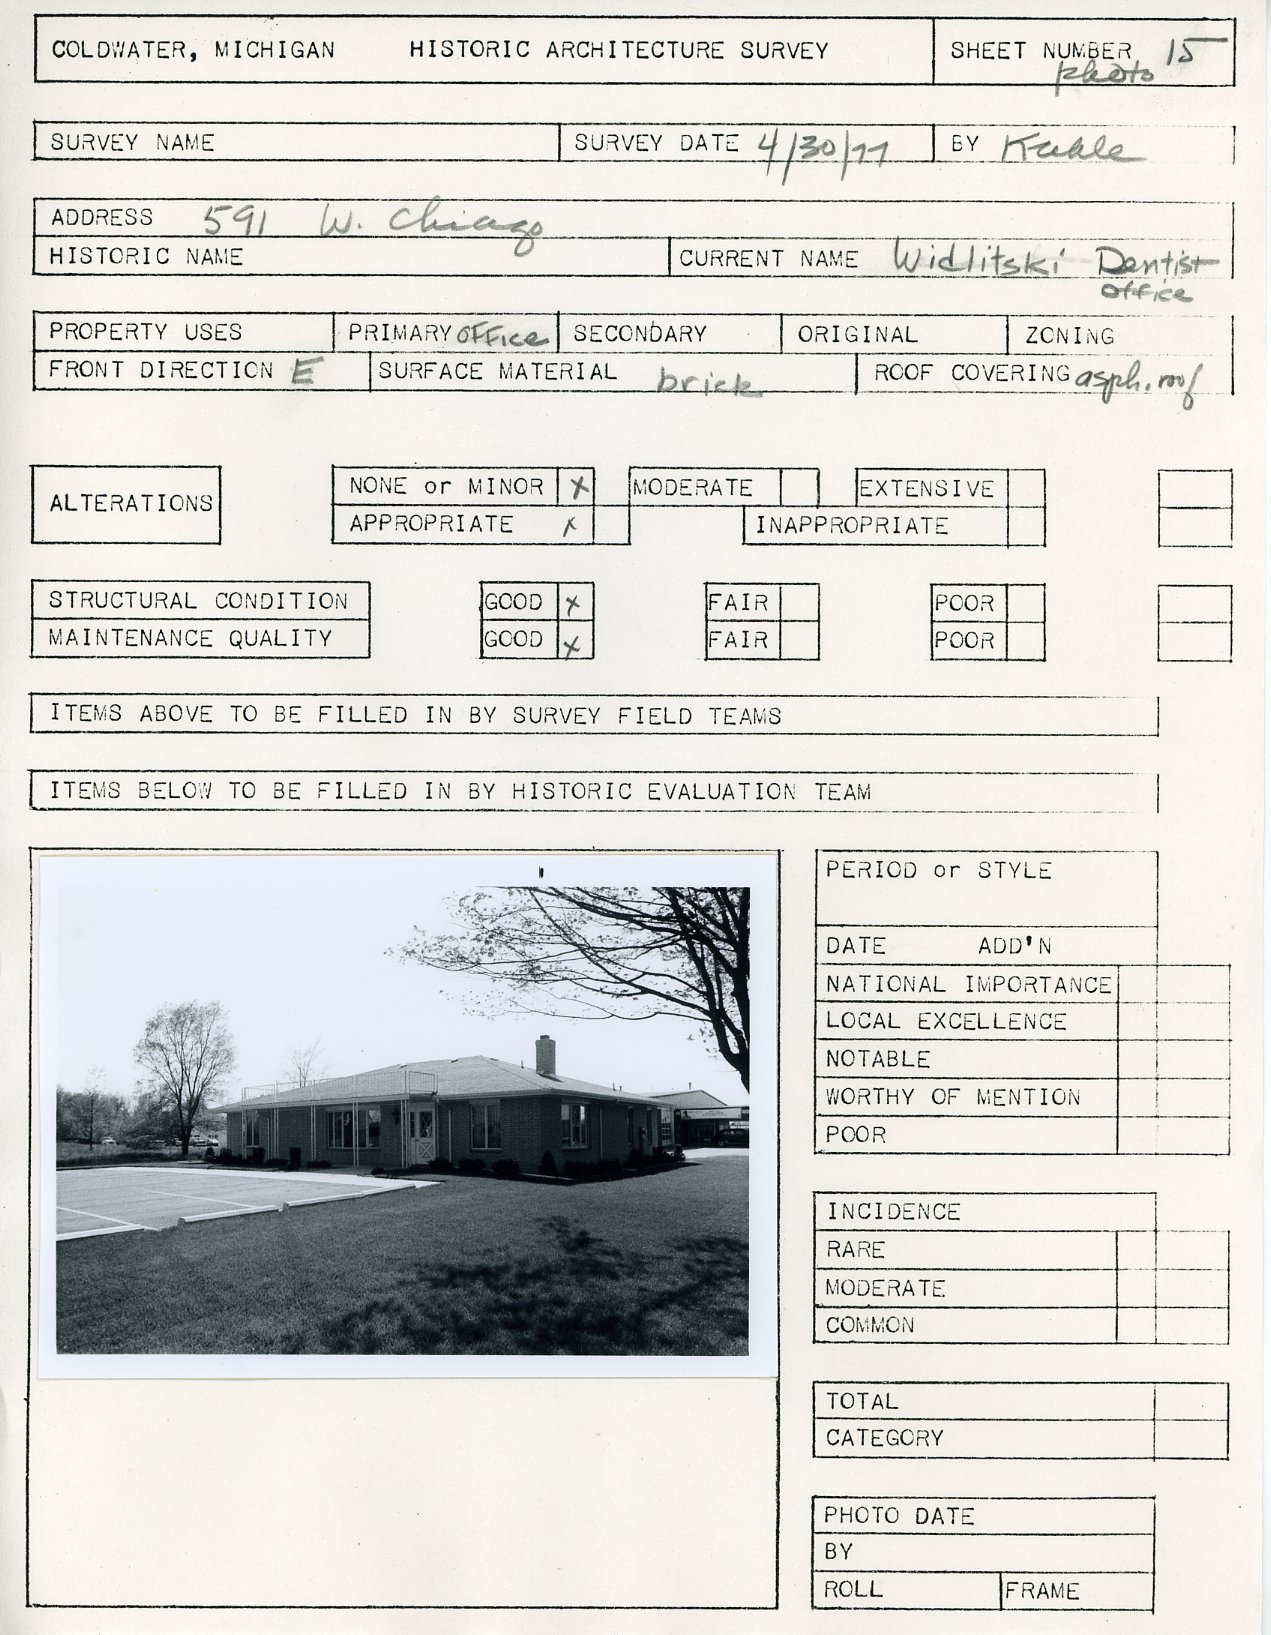 COLDWATER, MICHIGAN HISTORIC ARCHITECTURE SURVEY SHEET NUMBER 15
photo
SURVEY NAME SURVEY DATE 4/30/77 BY Kahle
ADDRESS 591 W. Chicago
HISTORIC NAME CURRENT NAME Widlitski Dentist
office
PROPERTY USES PRIMARY OFFice SECONDARY ORIGINAL ZONING
FRONT DIRECTION E SURFACE MATERIAL brick ROOF COVERING asph. roof
ALTERATIONS NONE or MINOR x MODERATE EXTENSIVE
APPROPRIATE x INAPPROPRIATE
STRUCTURAL CONDITION GOOD x FAIR POOR
MAINTENANCE QUALITY GOOD x FAIR POOR
ITEMS ABOVE TO BE FILLED IN BY SURVEY FIELD TEAMS
ITEMS BELOW TO BE FILLED IN BY HISTORIC EVALUATION TEAM
PERIOD or STYLE
DATE ADD'N
NATIONAL IMPORTANCE
LOCAL EXCELLENCE
NOTABLE
WORTHY OF MENTION
POOR
INCIDENCE
RARE
MODERATE
COMMON
TOTAL
CATEGORY
PHOTO DATE
BY
ROLL FRAME